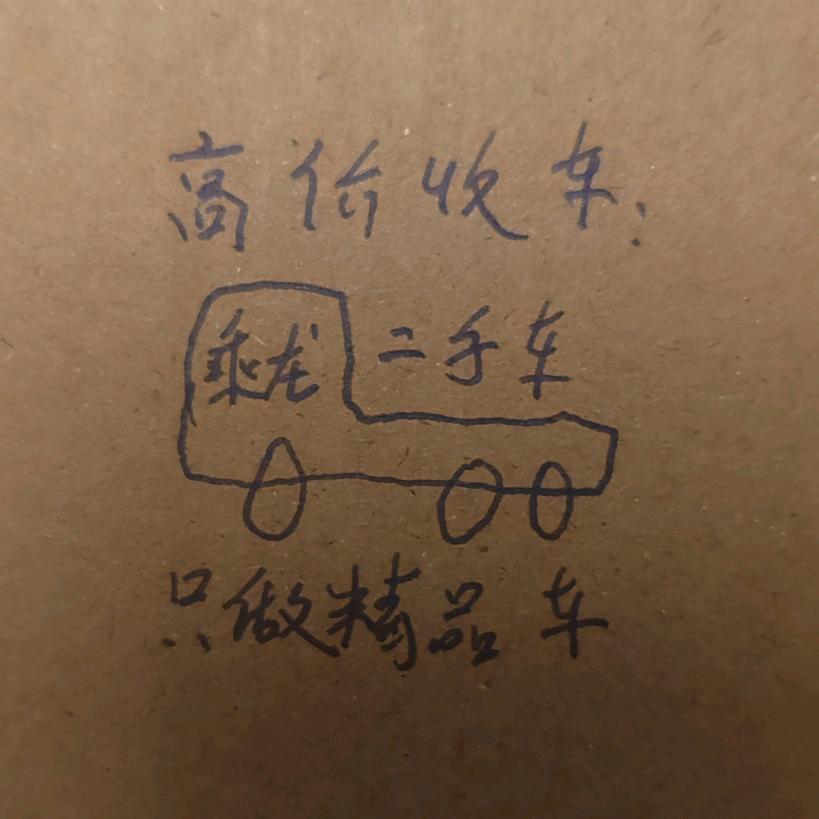 高价收车.
乘龙 二手车
只做精品车